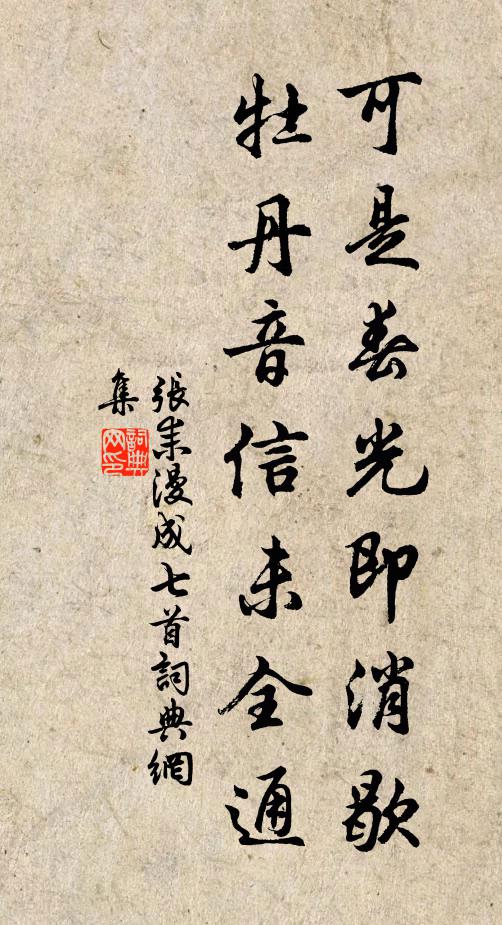 可是春光即消歇
牡丹音信未全通
張耒漫成七首詞典網
集
詞典网印